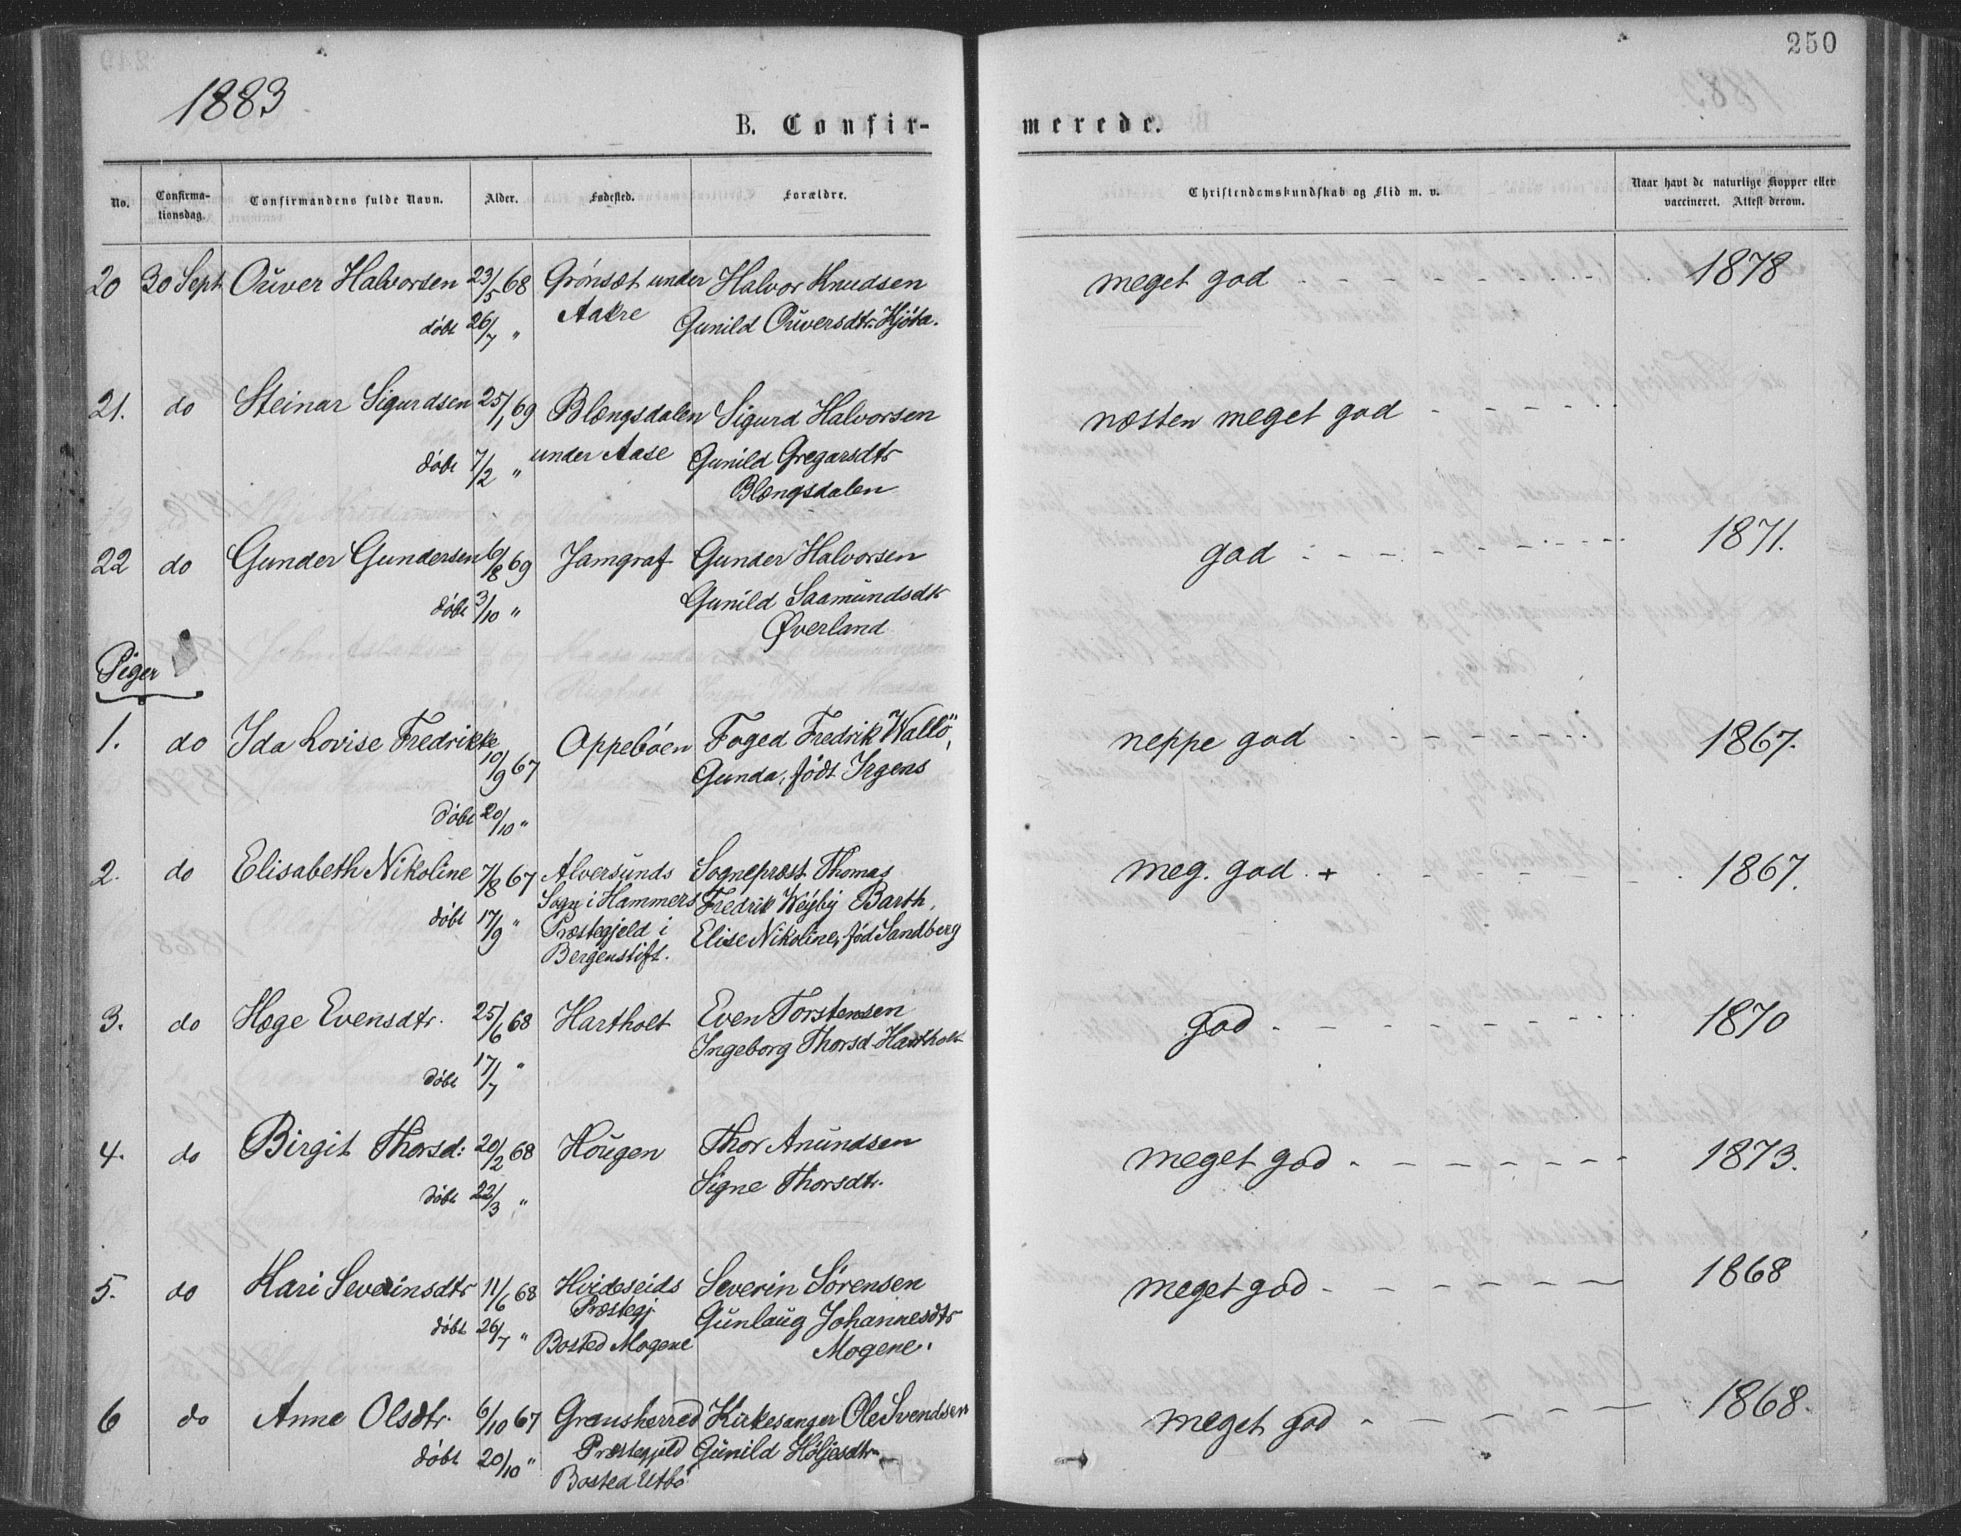 250
1883
B. Confir-
merede.
No.
Confirma-
tionsdag.
Confirmandens fulde Navn.
Alder.
Fødested.
Forældre.
Christendomskundskab og Flid m. v.
Naar havt de naturlige Kopper eller
vaccineret. Attest derom.
20 30 Sept Ouver Halvorsen 23/5 68 Grönsæt under Halvor Knudsen meget god 1878
döbt 26/7 " Aakre Gunild Ouversdtr. Hjöta.
21. do Steinar Sigurdsen 25/1 69 Blængsdalen Sigurd Halvorsen næsten meget god
döbt 7/2 " under Aase Gunild Gregarsdtr
Blængsdalen
22 do Gunder Gundersen 6/8 69 Jamgraf Gunder Halvorsen god 1871.
döbt 3/10 " Gunild Saamundsdtr
Øverland
Piger
1. do Ida Lovise Fredrikke Oppebøen Foged Fredrik Wallö, neppe god 1867.
10/9 67 Gunda, födt Irgens
döbt 20/10 "
2. do Elisabeth Nikoline 7/8 67 Alversunds Sognepræst Thomas meg. god + 1867.
Sogn i Hammers Fredrik Weyby Barth,
döbt 17/9 " Præstegjeld i Elise Nikoline, född Sandberg
Bergenstift.
3. do Hæge Evensdtr. 25/6 68 Hartholt Even Torstensen god 1870
Ingeborg Thorsd. Hartholt
döbt 17/7 "
4. do Birgit Thorsd: 20/2 68 Hougen Thor Anundsen meget god 1873.
döbt 22/3 " Signe Thorsdtr.
5. do Kari Severinsdtr 11/6 68 Hvideseids Severin Sørensen meget god 1868
Præstegj.
döbt 26/7 " Gunlaug Johannesdtr
Bosted Mogene Mogene.
6 do Anne Olsdtr. 6/10 67 Gransherred Kirkesanger Ole Svendsen meget god 1868.
döbt 20/10 " Præstegjeld Gunild Höljesdtr.
Bosted Utbö